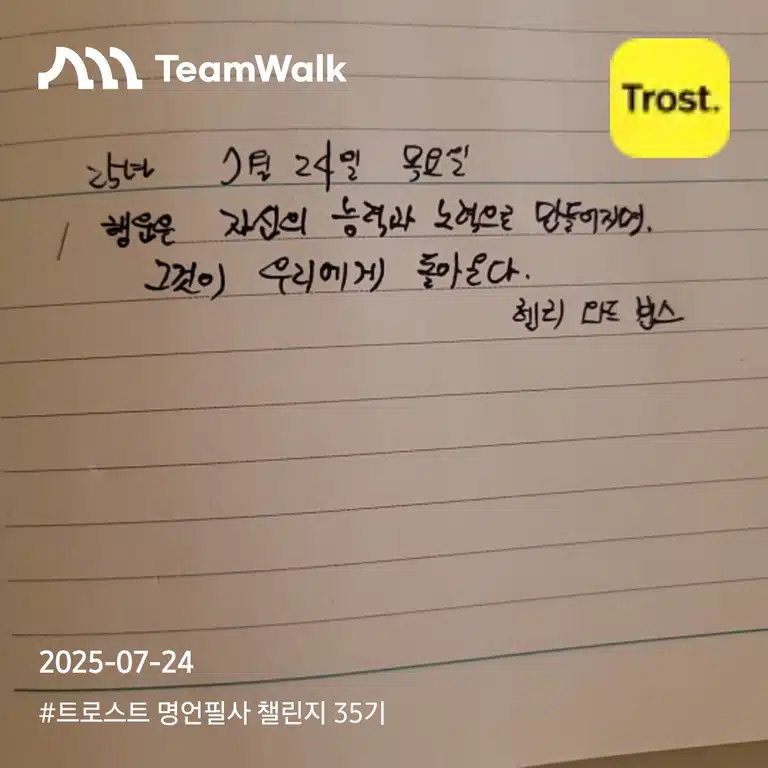 TeamWalk
Trost.
25년 7월 24일 목요일
행운은 자신의 능력과 노력으로 만들어지며,
그것이 우리에게 돌아온다.
헨리 만드 법스
2025-07-24
#트로스트 명언필사 챌린지 35기